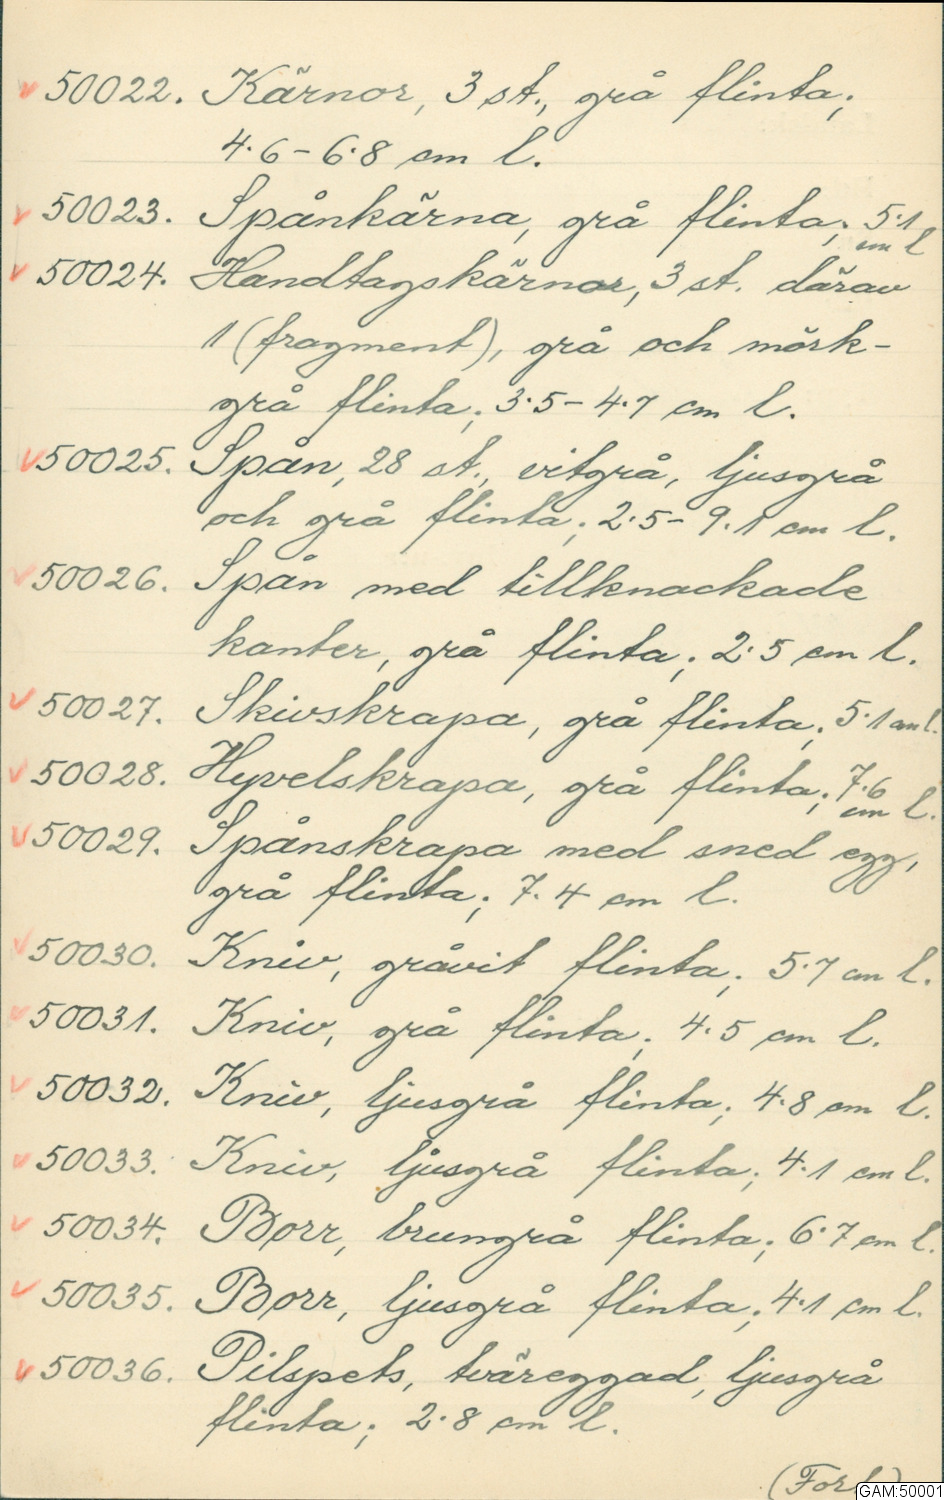 v 50022. Kärnor, 3 st., grå flinta;
4·6 – 6·8 cm l.
v 50023. Spånkärna, grå flinta; 5·1
cm l
v 50024. Handtagskärnor, 3 st. därav
1 (fragment), grå och mörk-
grå flinta; 3·5 – 4·7 cm l.
v 50025. Spån, 28 st., vitgrå, ljusgrå
och grå flinta; 2·5 – 9·1 cm l.
v 50026. Spån med tillknackade
kanter, grå flinta; 2·5 cm l.
v 50027. Skivskrapa, grå flinta; 5·1 cm l.
v 50028. Hyvelskrapa, grå flinta; 7·6
cm l.
v 50029. Spånskrapa med sned egg,
grå flinta; 7·4 cm l.
v 50030. Kniv, gråvit flinta; 5·7 cm l.
v 50031. Kniv, grå flinta; 4·5 cm l.
v 50032. Kniv, ljusgrå flinta; 4·8 cm l.
v 50033. Kniv, ljusgrå flinta; 4·1 cm l.
v 50034. Borr, brungrå flinta; 6·7 cm l.
v 50035. Borr, ljusgrå flinta; 4·1 cm l.
v 50036. Pilspets, tväreggad, ljusgrå
flinta; 2·8 cm l.
GAM:50001